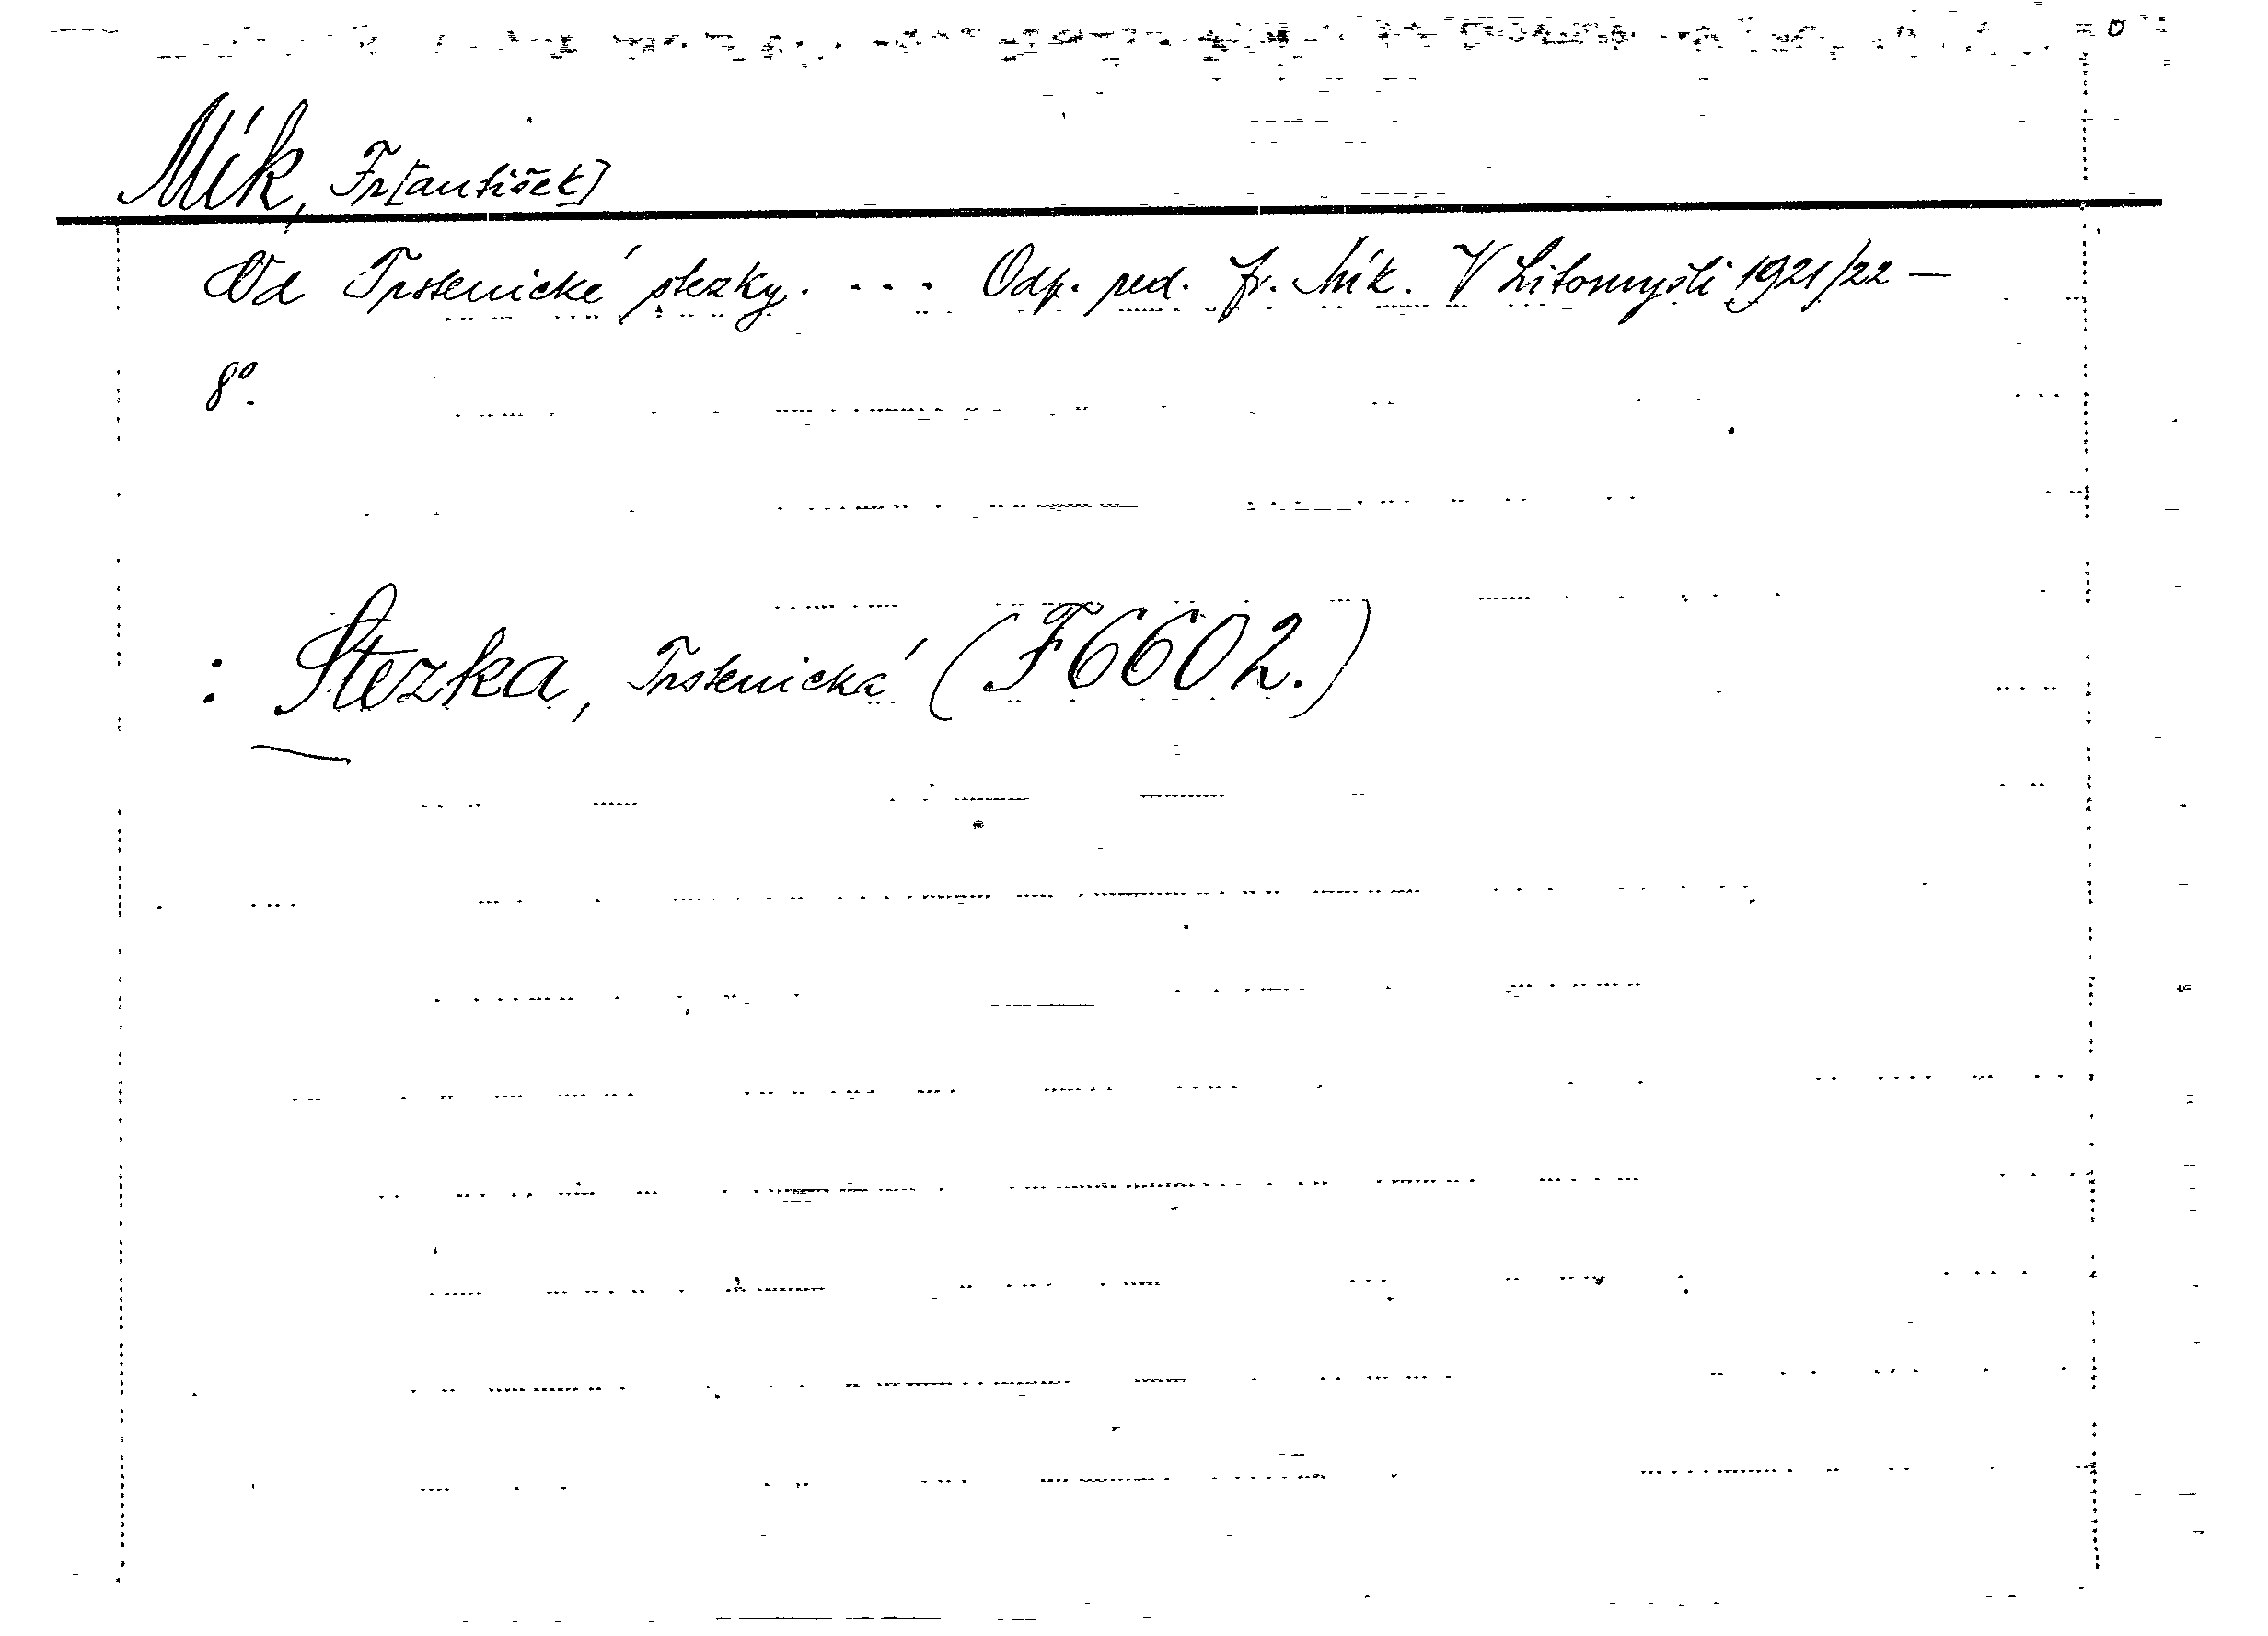 Mík, Fr[antišek]
Od Trstenické stezky. ... Odp. red. Fr. Mík. V Litomyšli 1921/22 —
8°.
: Stezka, Trstenická (F6602.)